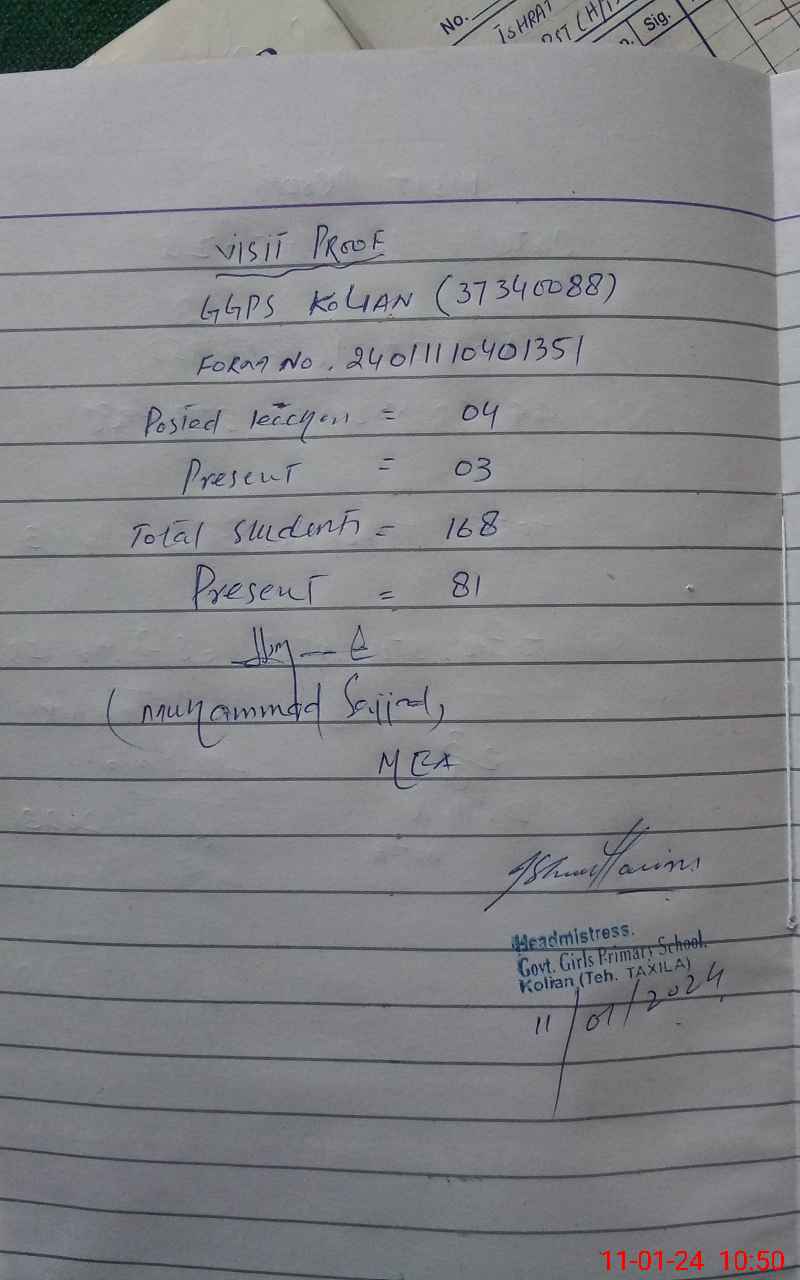 No.
ISHRAT
PST (H/T
Sig.
VISIT PROOF
GGPS KOLIAN (37340088)
FORM NO. 24011110401351
Posted teachers = 04
Present = 03
Total students = 168
Present = 81
(Muhammad Sajjad,
MEA
Headmistress.
Govt. Girls Primary School.
Kolian (Teh. TAXILA)
11/01/2024
11-01-24 10:50